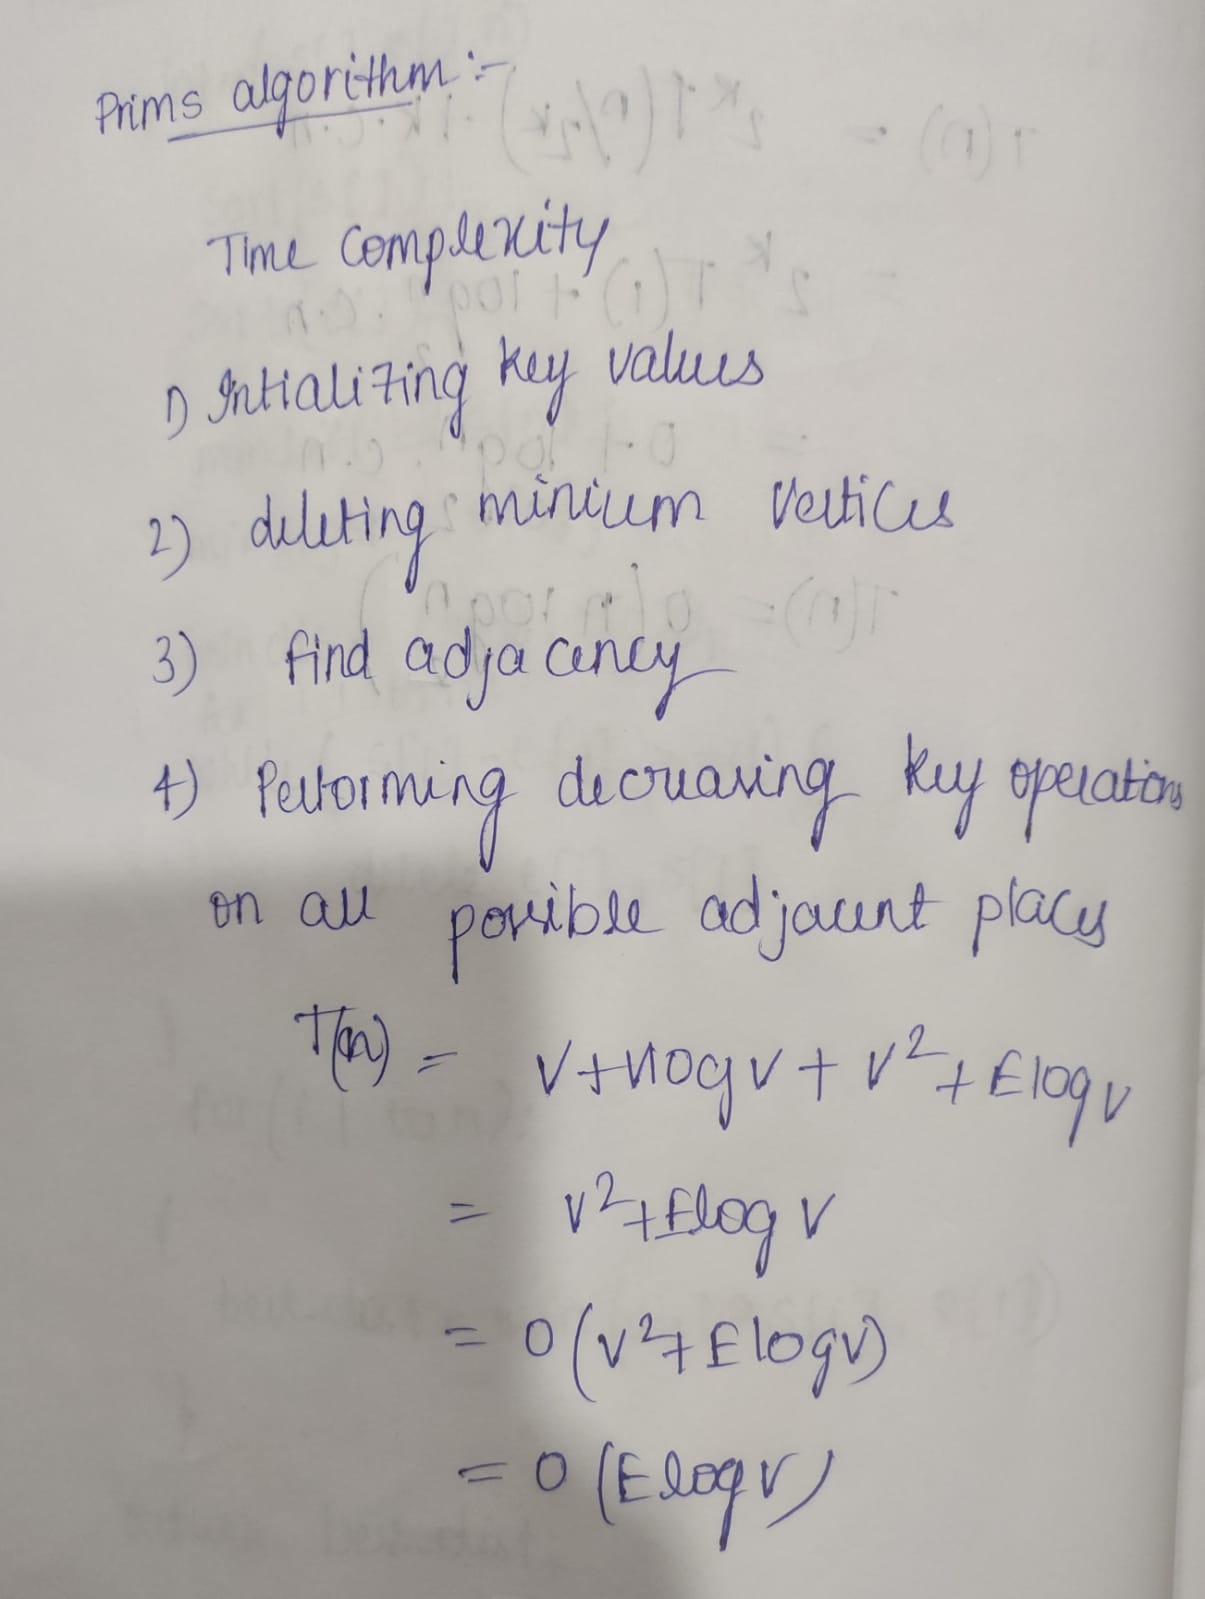 Prims algorithm :-
Time Complexity
1) Intializing key values
2) deleting minium vertices
3) find adjacency
4) Performing decreasing key operations
on all possible adjacent places
T(n) = V+Vlogv + V²+Elogv
= V²+Elog V
= O(V²+Elogv)
= O(Elogv)